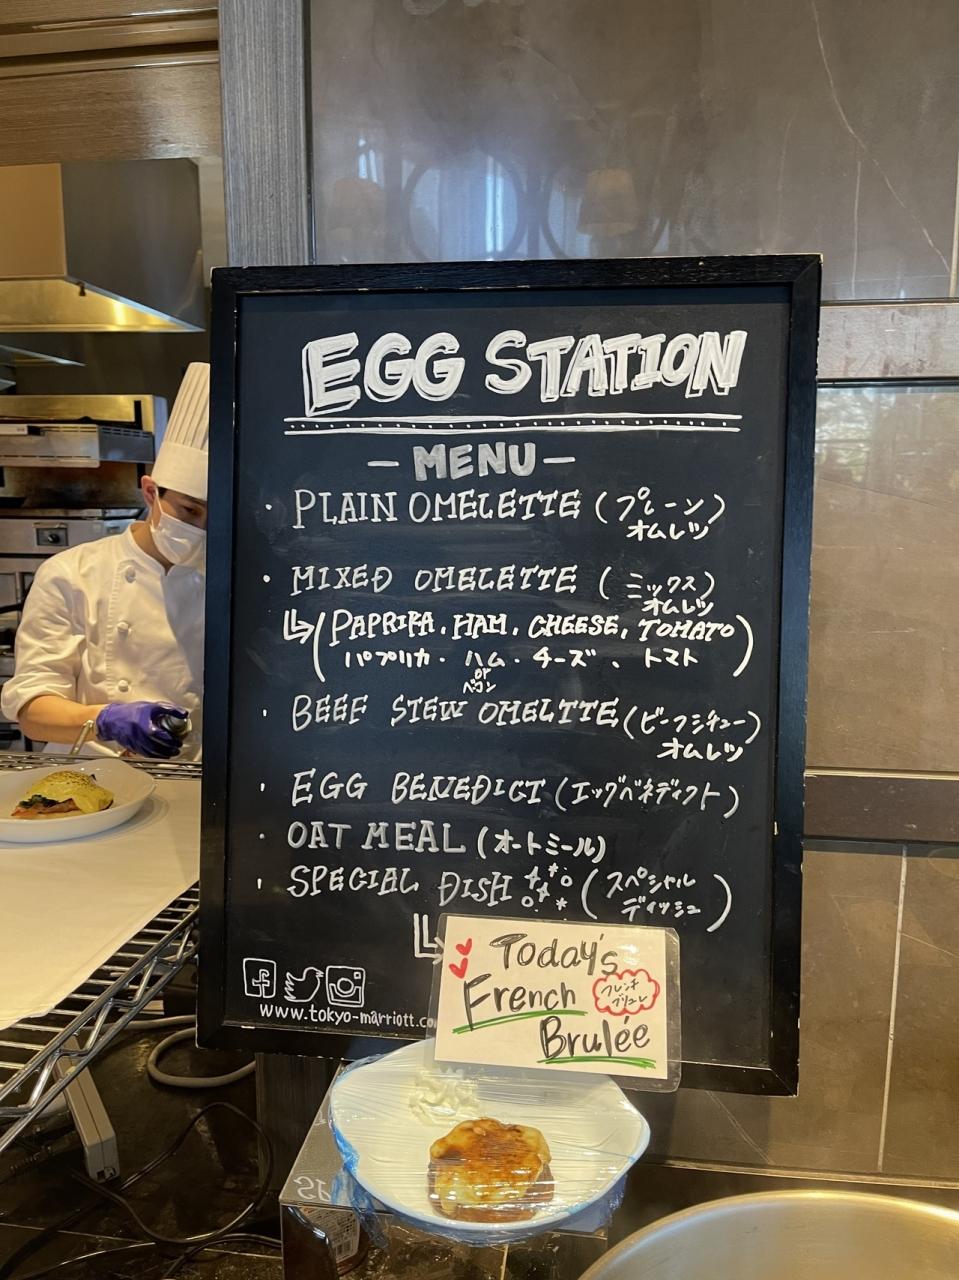 EGG STATION
- MENU -
· PLAIN OMELETTE (プレーン)
オムレツ
· MIXED OMELETTE (ミックス)
オムレツ
(PAPRIKA, HAM, CHEESE, TOMATO)
パプリカ・ハム・チーズ、トマト
or
ベーコン
· BEEF STEW OMELTTE (ビーフシチュー)
オムレツ
· EGG BENEDICT (エッグベネディクト)
· OAT MEAL (オートミール)
· SPECIAL DISH (スペシャル
ディッシュ)
Today's
French
フレンチ
ブリュレ
Brulée
www.tokyo-marriott.co